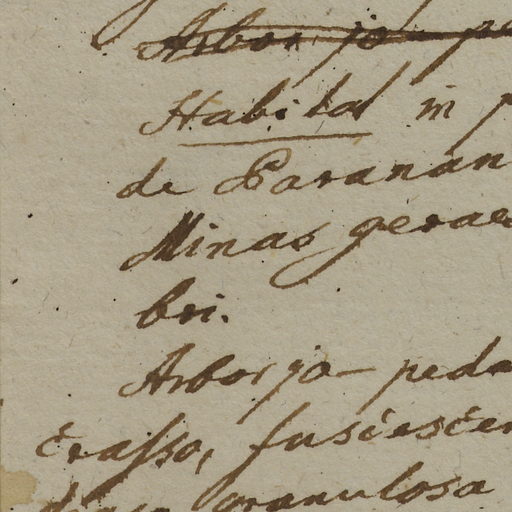 Arbor 30- pe
Habitat in p
de Paranan
Minas geraes
bri.
Arbor 30- peda
crasso, fusiescen
granulosa